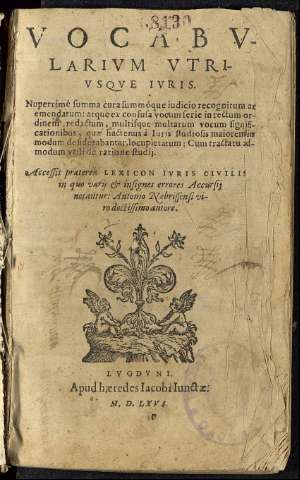 68130
VOCABV-
LARIVM VTRI-
VSQVE IVRIS.
Nuperrimè summa cura summóque iudicio recognitum ac
emendatum: atque ex confusa vocum serie in rectum or-
dinem redactum, multisque multarum vocum signifi-
cationibus, quæ hactenus à Iuris studiosis maiorem in
modum desiderabantur, locupletatum: Cum tractatu ad-
modum vtili de ratione studij.
Accessit præterea LEXICON IVRIS CIVILIS
in quo varij & insignes errores Accursij
notantur: Antonio Nebrissensi vi-
ro doctissimo autore.
LVGDVNI,
Apud hæredes Iacobi Iunctæ.
M. D. LXVI.